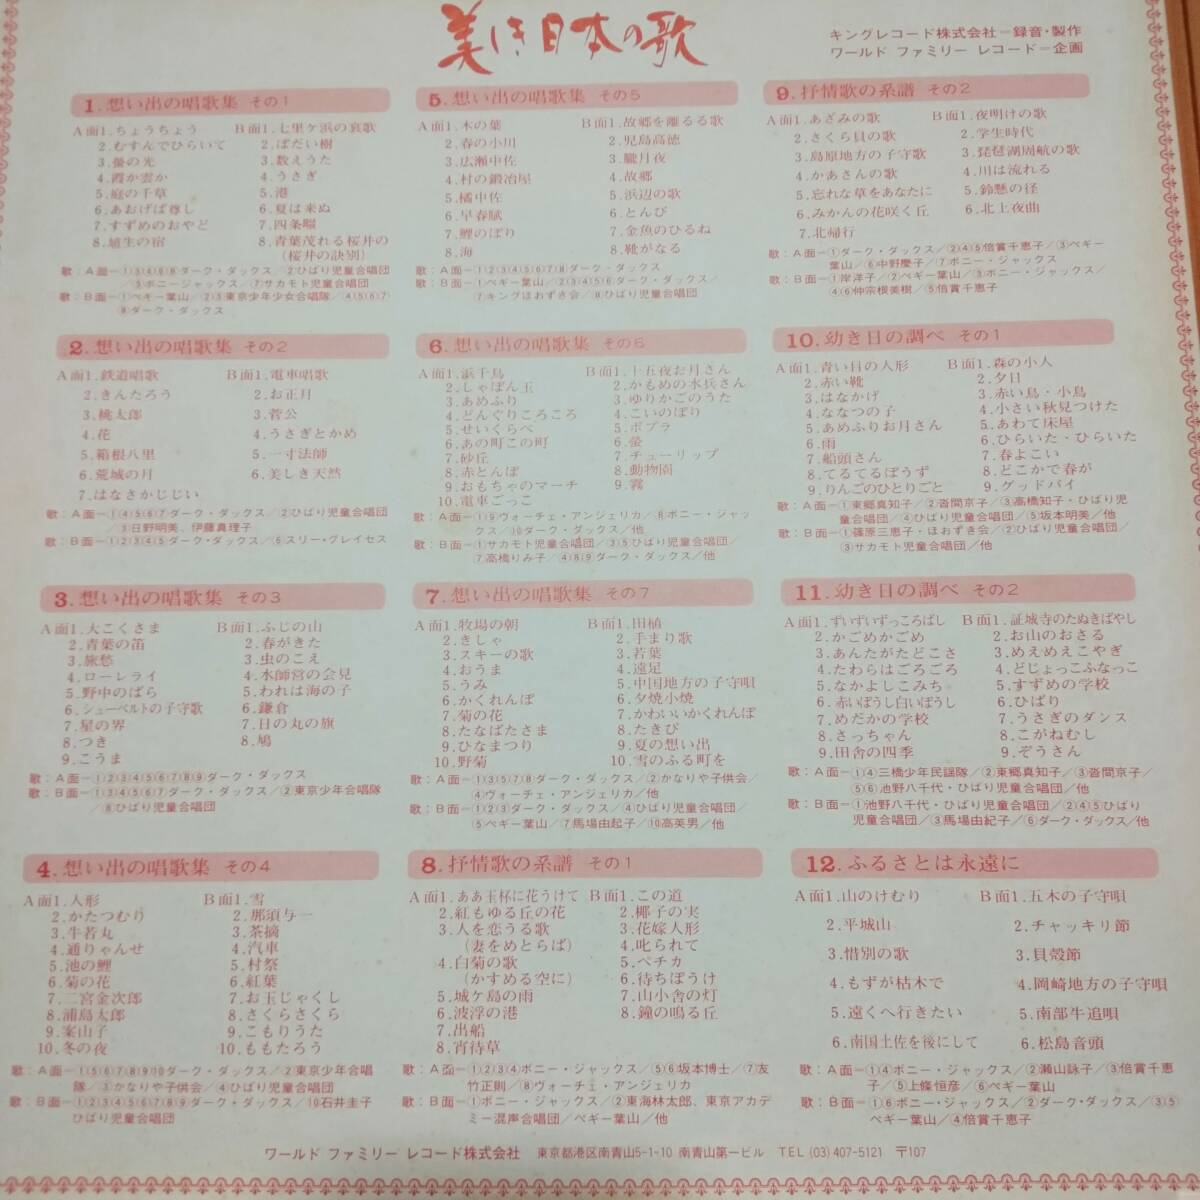 美しき日本の歌
キングレコード株式会社=録音・製作
ワールド ファミリー レコード=企画
1. 想い出の唱歌集 その1
A面1.ちょうちょう
2.むすんでひらいて
3.螢の光
4.霞か雲か
5.庭の千草
6.あおげば尊し
7.すずめのおやど
8.埴生の宿
B面1.七里ケ浜の哀歌
2.ぼだい樹
3.数えうた
4.うさぎ
5.港
6.夏は来ぬ
7.四条畷
8.青葉茂れる桜井の
(桜井の訣別)
歌:A面=①③④⑥⑧ダーク・ダックス/②ひばり児童合唱団
/⑤ボニージャックス/⑦サカモト児童合唱団
歌:B面=①ペギー葉山/②③東京少年少女合唱隊/④⑤⑥⑦
⑧ダーク・ダックス
2. 想い出の唱歌集 その2
A面1.鉄道唱歌
2.きんたろう
3.桃太郎
4.花
5.箱根八里
6.荒城の月
7.はなさかじじい
B面1.電車唱歌
2.お正月
3.菅公
4.うさぎとかめ
5.一寸法師
6.美しき天然
歌:A面=①④⑤⑥⑦ダーク・ダックス/②ひばり児童合唱団
/③日野明美、伊藤真理子
歌:B面=①②③④⑤ダーク・ダックス/⑥スリー・グレイセス
3. 想い出の唱歌集 その3
A面1.大こくさま
2.青葉の笛
3.旅愁
4.ローレライ
5.野中のばら
6.シューベルトの子守歌
7.星の界
8.つき
9.こうま
B面1.ふじの山
2.春がきた
3.虫のこえ
4.水師営の会見
5.われは海の子
6.鎌倉
7.日の丸の旗
8.鳩
歌:A面=①②③④⑤⑥⑦⑧⑨ダーク・ダックス
歌:B面=①③④⑤⑥⑦ダーク・ダックス/②東京少年合唱隊
/⑧ひばり児童合唱団
4. 想い出の唱歌集 その4
A面1.人形
2.かたつむり
3.牛若丸
4.通りゃんせ
5.池の鯉
6.菊の花
7.二宮金次郎
8.浦島太郎
9.案山子
10.冬の夜
B面1.雪
2.那須与一
3.茶摘
4.汽車
5.村祭
6.紅葉
7.お玉じゃくし
8.さくらさくら
9.こもりうた
10.ももたろう
歌:A面=①⑤⑥⑦⑧⑨⑩ダーク・ダックス/②東京少年合唱
隊/③かなりや子供会/④ひばり児童合唱団
歌:B面=①②③④⑤⑥⑦⑧⑨ダーク・ダックス/⑩石井圭子
ひばり児童合唱団
5. 想い出の唱歌集 その5
A面1.木の葉
2.春の小川
3.広瀬中佐
4.村の鍛冶屋
5.橘中佐
6.早春賦
7.鯉のぼり
8.海
B面1.故郷を離るる歌
2.児島高徳
3.朧月夜
4.故郷
5.浜辺の歌
6.とんび
7.金魚のひるね
8.靴がなる
歌:A面=①②③④⑤⑥⑦⑧ダーク・ダックス
歌:B面=①ペギー葉山/②③④⑤⑥ダーク・ダックス
/⑦キングほおずき会/⑧ひばり児童合唱団
6. 想い出の唱歌集 その6
A面1.浜千鳥
2.しゃぼん玉
3.あめふり
4.どんぐりころころ
5.せいくらべ
6.あの町この町
7.砂丘
8.赤とんぼ
9.おもちゃのマーチ
10.電車ごっこ
B面1.十五夜お月さん
2.かもめの水兵さん
3.ゆりかごのうた
4.こいのぼり
5.ポプラ
6.螢
7.チューリップ
8.動物園
9.霧
歌:A面=①⑨ヴォーチェ・アンジェリカ/⑧ボニー・ジャッ
クス/⑩ダーク・ダックス/他
歌:B面=①サカモト児童合唱団/③⑤ひばり児童合唱団/
⑦高橋りみ子/④⑧⑨ダーク・ダックス/他
7. 想い出の唱歌集 その7
A面1.牧場の朝
2.きしゃ
3.スキーの歌
4.おうま
5.うみ
6.かくれんぼ
7.菊の花
8.たなばたさま
9.ひなまつり
10.野菊
B面1.田植
2.手まり歌
3.若葉
4.遠足
5.中国地方の子守唄
6.夕焼小焼
7.かわいいかくれんぼ
8.たきび
9.夏の想い出
10.雪のふる町を
歌:A面=①③⑤⑦⑧ダーク・ダックス/②かなりや子供会/
④ヴォーチェ・アンジェリカ/他
歌:B面=①②③ダーク・ダックス/④ひばり児童合唱団/
⑤ペギー葉山/⑦馬場由起子/⑩高英男/他
8. 抒情歌の系譜 その1
A面1.ああ玉杯に花うけて
2.紅もゆる丘の花
3.人を恋うる歌
(妻をめとらば)
4.白菊の歌
(かすめる空に)
5.城ケ島の雨
6.波浮の港
7.出船
8.宵待草
B面1.この道
2.椰子の実
3.花嫁人形
4.叱られて
5.ペチカ
6.待ちぼうけ
7.山小舎の灯
8.鐘の鳴る丘
歌:A面=①②③④ボニー・ジャックス/⑤⑥坂本博士/⑦友
竹正則/⑧ヴォーチェ・アンジェリカ
歌:B面=①ボニー・ジャックス/②東海林太郎、東京アカデ
ミー混声合唱団/ペギー葉山/他
9. 抒情歌の系譜 その2
A面1.あざみの歌
2.さくら貝の歌
3.島原地方の子守歌
4.かあさんの歌
5.忘れな草をあなたに
6.みかんの花咲く丘
7.北帰行
B面1.夜明けの歌
2.学生時代
3.琵琶湖周航の歌
4.川は流れる
5.鈴懸の径
6.北上夜曲
歌:A面=①ダーク・ダックス/②④⑤倍賞千恵子/③ペギー
葉山/⑥中野慶子/⑦ボニー・ジャックス
歌:B面=①岸洋子/②ペギー葉山/③ボニー・ジャックス/
④⑥仲宗根美樹/⑤倍賞千恵子
10. 幼き日の調べ その1
A面1.青い目の人形
2.赤い靴
3.はなかげ
4.ななつの子
5.あめふりお月さん
6.雨
7.船頭さん
8.てるてるぼうず
9.りんごのひとりごと
B面1.森の小人
2.夕日
3.赤い鳥・小鳥
4.小さい秋見つけた
5.あわて床屋
6.ひらいた・ひらいた
7.春よこい
8.どこかで春が
9.グッドバイ
歌:A面=①東郷真知子/②沓間京子/③高橋知子・ひばり児
童合唱団/④ひばり児童合唱団/⑤坂本明美/他
歌:B面=①篠原三恵子・ほおずき会/②ひばり児童合唱団/
③サカモト児童合唱団/他
11. 幼き日の調べ その2
A面1.ずいずいずっころばし
2.かごめかごめ
3.あんたがたどこさ
4.たわらはごろごろ
5.なかよしこみち
6.赤いぼうし白いぼうし
7.めだかの学校
8.さっちゃん
9.田舎の四季
B面1.証城寺のたぬきばやし
2.お山のおさる
3.めえめえこやぎ
4.どじょっこふなっこ
5.すずめの学校
6.ひばり
7.うさぎのダンス
8.こがねむし
9.ぞうさん
歌:A面=①④三橋少年民謡隊/②東郷真知子/③沓間京子/
⑤⑥池野八千代・ひばり児童合唱団/他
歌:B面=①池野八千代・ひばり児童合唱団/②④⑤ひばり
児童合唱団/③馬場由紀子/⑥ダーク・ダックス/他
12. ふるさとは永遠に
A面1.山のけむり
2.平城山
3.惜別の歌
4.もずが枯木で
5.遠くへ行きたい
6.南国土佐を後にして
B面1.五木の子守唄
2.チャッキリ節
3.貝殻節
4.岡崎地方の子守唄
5.南部牛追唄
6.松島音頭
歌:A面=①④ボニー・ジャックス/②瀬山詠子/③倍賞千恵
子/⑤上條恒彦/⑥ペギー葉山
歌:B面=①⑥ボニー・ジャックス/②ダーク・ダックス/③⑤
ペギー葉山/④倍賞千恵子
ワールド ファミリー レコード株式会社 東京都港区南青山5-1-10 南青山第一ビル TEL (03)407-5121 〒107